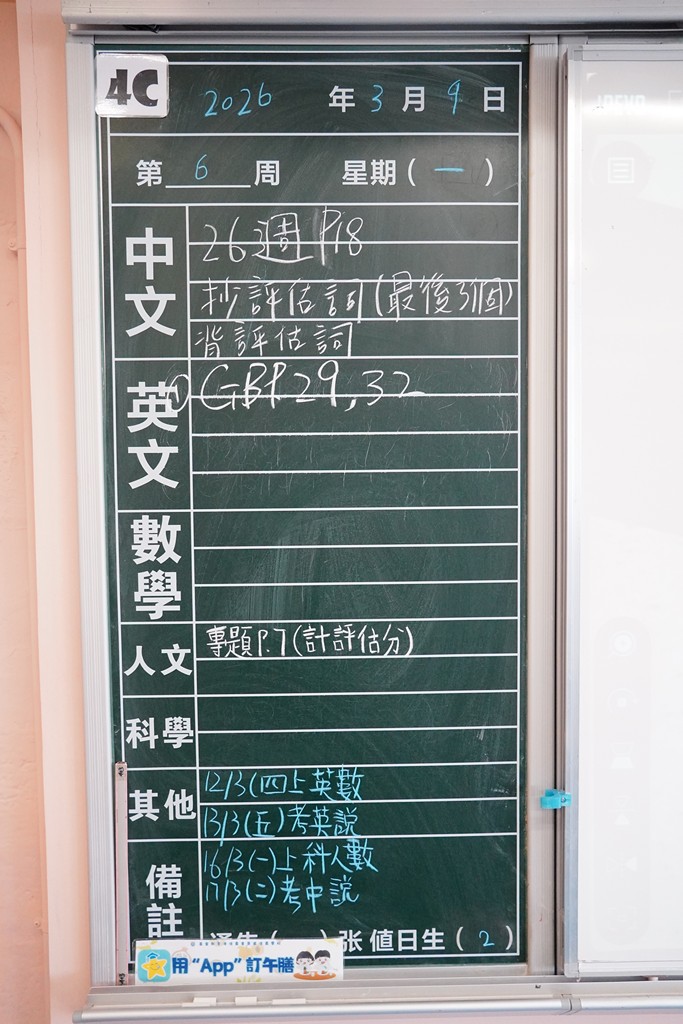 4C
2026 年 3 月 9 日
第 6 周 星期 ( 一 )
中文
26週 P.18
抄評估詞(最後3個)
背評估詞
英文
① GB P.29, 32
數學
人文
專題P.7(計評估分)
科學
其他
12/3(四)上英數
13/3(五)考英說
備註
16/3(一)上科人數
17/3(二)考中說
通告( )张 值日生( 2 )
用“App”訂午膳